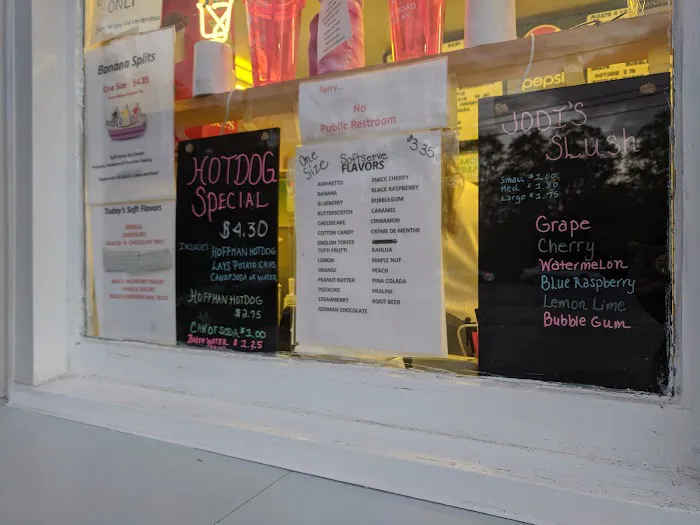 ONLY
Banana Splits
One Size $4.85
Today's Soft Flavors
VANILLA
CHOCOLATE
HOTDOG
SPECIAL
$4.30
INCLUDES:
HOFFMAN HOTDOG
LAYS POTATO CHIPS
CAN OF SODA OR WATER
HOFFMAN HOTDOG
$2.75
CAN OF SODA $1.00
BOTTLE WATER $1.25
Sorry...
No
Public Restroom
One Size
Softserve
FLAVORS
$3.35
AMARETTO
BANANA
BLUEBERRY
BUTTERSCOTCH
CHEESECAKE
COTTON CANDY
ENGLISH TOFFEE
TUTTI FRUTTI
LEMON
ORANGE
PEANUT BUTTER
PISTACHIO
STRAWBERRY
GERMAN CHOCOLATE
BLACK CHERRY
BLACK RASPBERRY
BUBBLEGUM
CARAMEL
CINNAMON
CRÈME DE MENTHE
KAHLUA
MAPLE NUT
PEACH
PINA COLADA
PRALINE
ROOT BEER
pepsi
JODI'S
SLUSH
Small $1.00
Med $1.30
Large $1.75
Grape
Cherry
Watermelon
Blue Raspberry
Lemon Lime
Bubble Gum